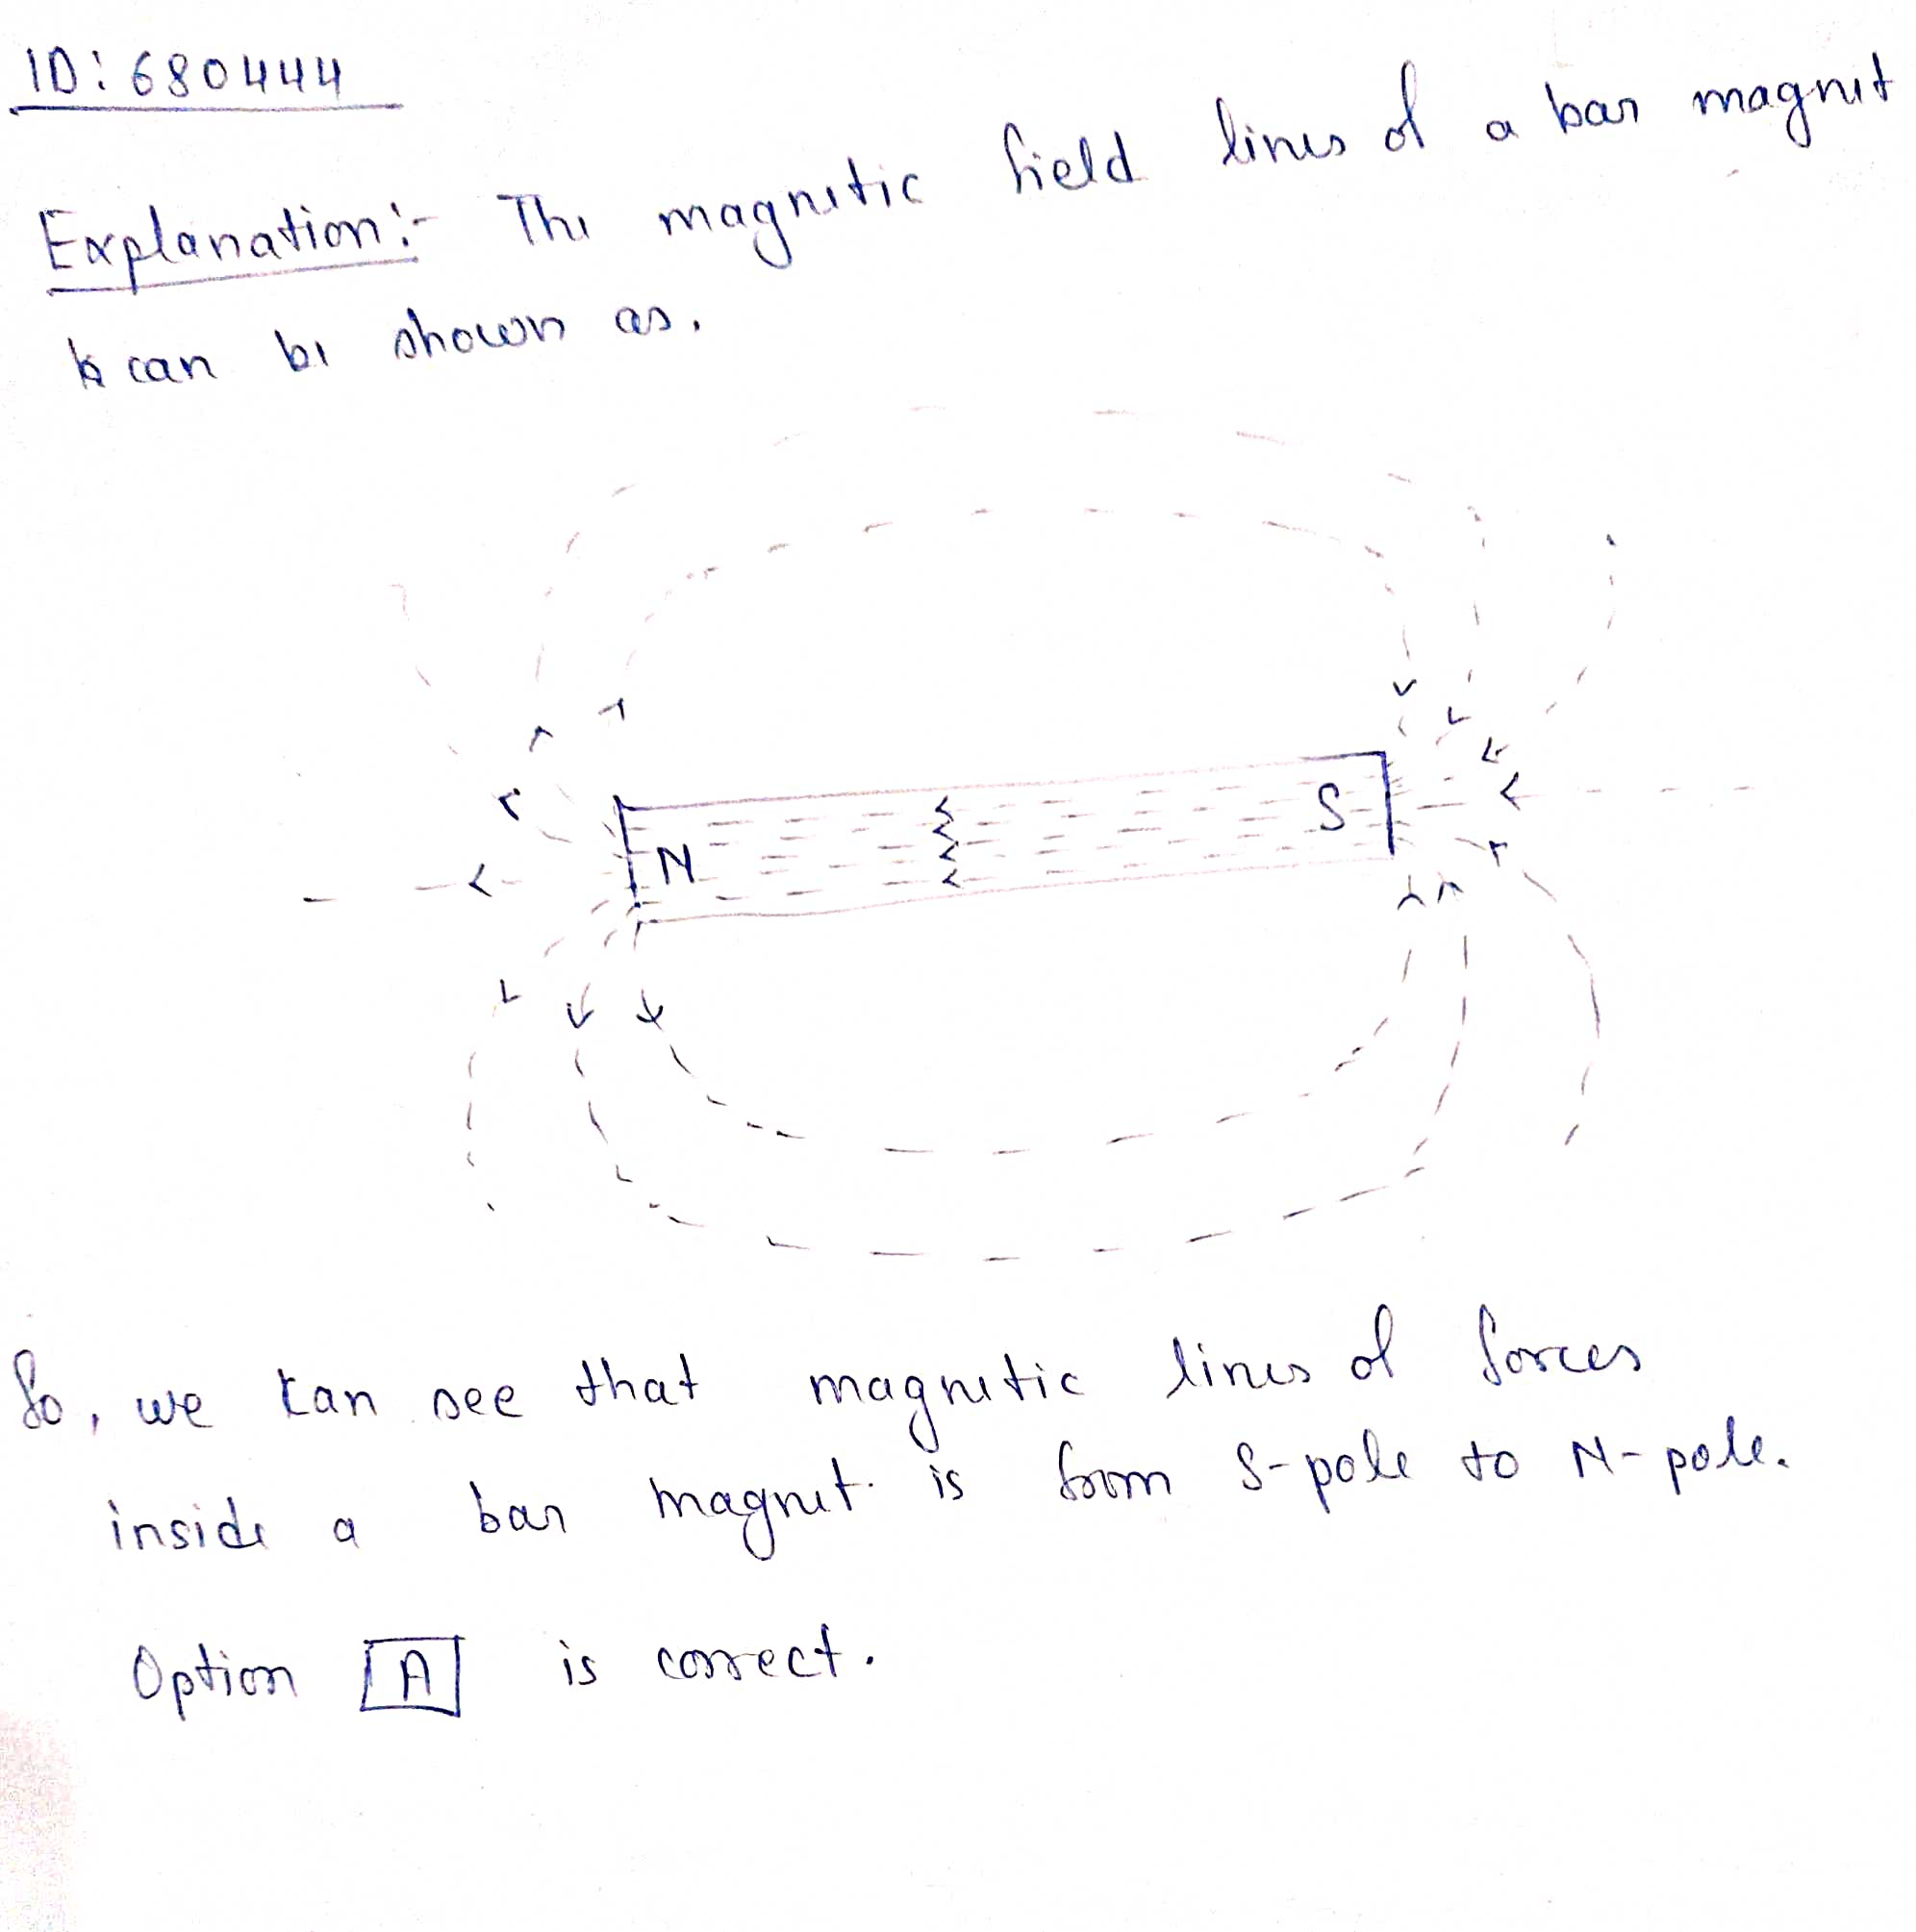 ID: 680444
Explanation:- The magnetic field lines of a bar magnet
can be shown as.
N S
So, we can see that magnetic lines of forces
inside a bar magnet. is from S-pole to N-pole.
Option A is correct.